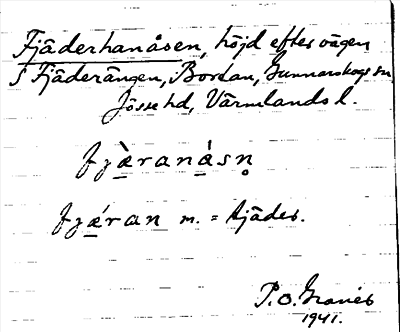 Fjäderhanåsen, höjd efter vägen
S Fjäderängen, Bortan, Gunnarskogs sn
Jösse hd, Värmlands l.
fjæ̀ranåsn̥
fjǽran m. = fjäder.
P.O. Granér
1941.